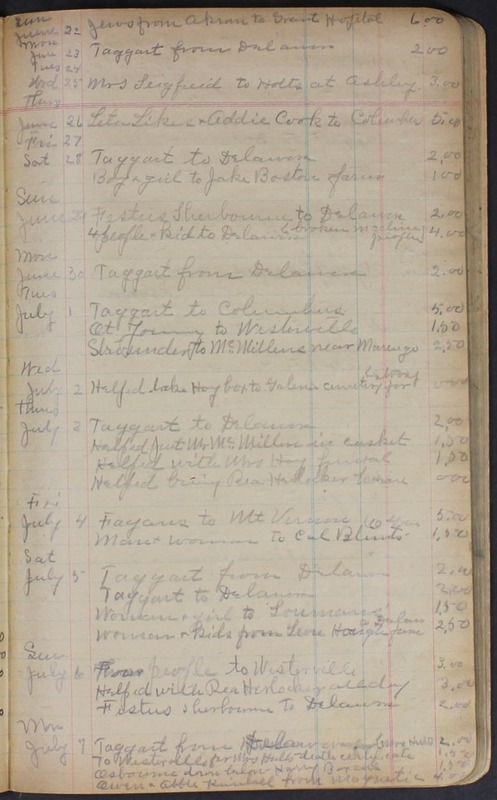 Sun
June 22 Jews from Akron to Grant Hospital 6.00
Mon
June 23 Taggart from Delawon 2.00
Tues 24
Wed 25 Mrs Seigfried to Holts at Ashley 3.00
Thurs
June 26 Leta Likes & Addie Cook to Columbus 5.00
Fri 27
Sat 28 Taggart to Delawon 2.00
Boy & girl to Jake Boston farm 1.00
Sun
June 29 Festus Sherbourne to Delawon 2.00
4 people & Kid to Delawon broken machine people 4.00
Mon
June 30 Taggart from Delawon 2.00
Tues
July 1 Taggart to Columbus 5.00
to Westerville 1.50
to McMillens near Marengo 2.50
Wed
July 2 Helped take Hoy box to Galena cemetery for
Thurs
July 3 Taggart to Delawon 2.00
Helped put Mr McMillen in casket 1.50
Helped with Mrs Hoy funeral 1.50
Helped bring Rea Herlocker home 0.00
Fri
July 4 Fagans to Mt Vernon 5.00
Man & woman to Cal Blunts 1.50
Sat
July 5 Taggart from Delawon 2.00
Taggart to Delawon 2.00
Woman & girl to 1.50
Woman & Kids from Leon to Delawon 2.50
Sun
July 6 people to Westerville 3.00
Helped with Rea Herlocker all day 3.00
Festus Sherbourne to Delawon 2.00
Mon
July 7 Taggart from Delawon 2.00
To Westerville for Mrs Hulls death certificate 1.50
Osbourne down below Harry 1.50
Owen & Abbie Kendall from Magnetic 4.00